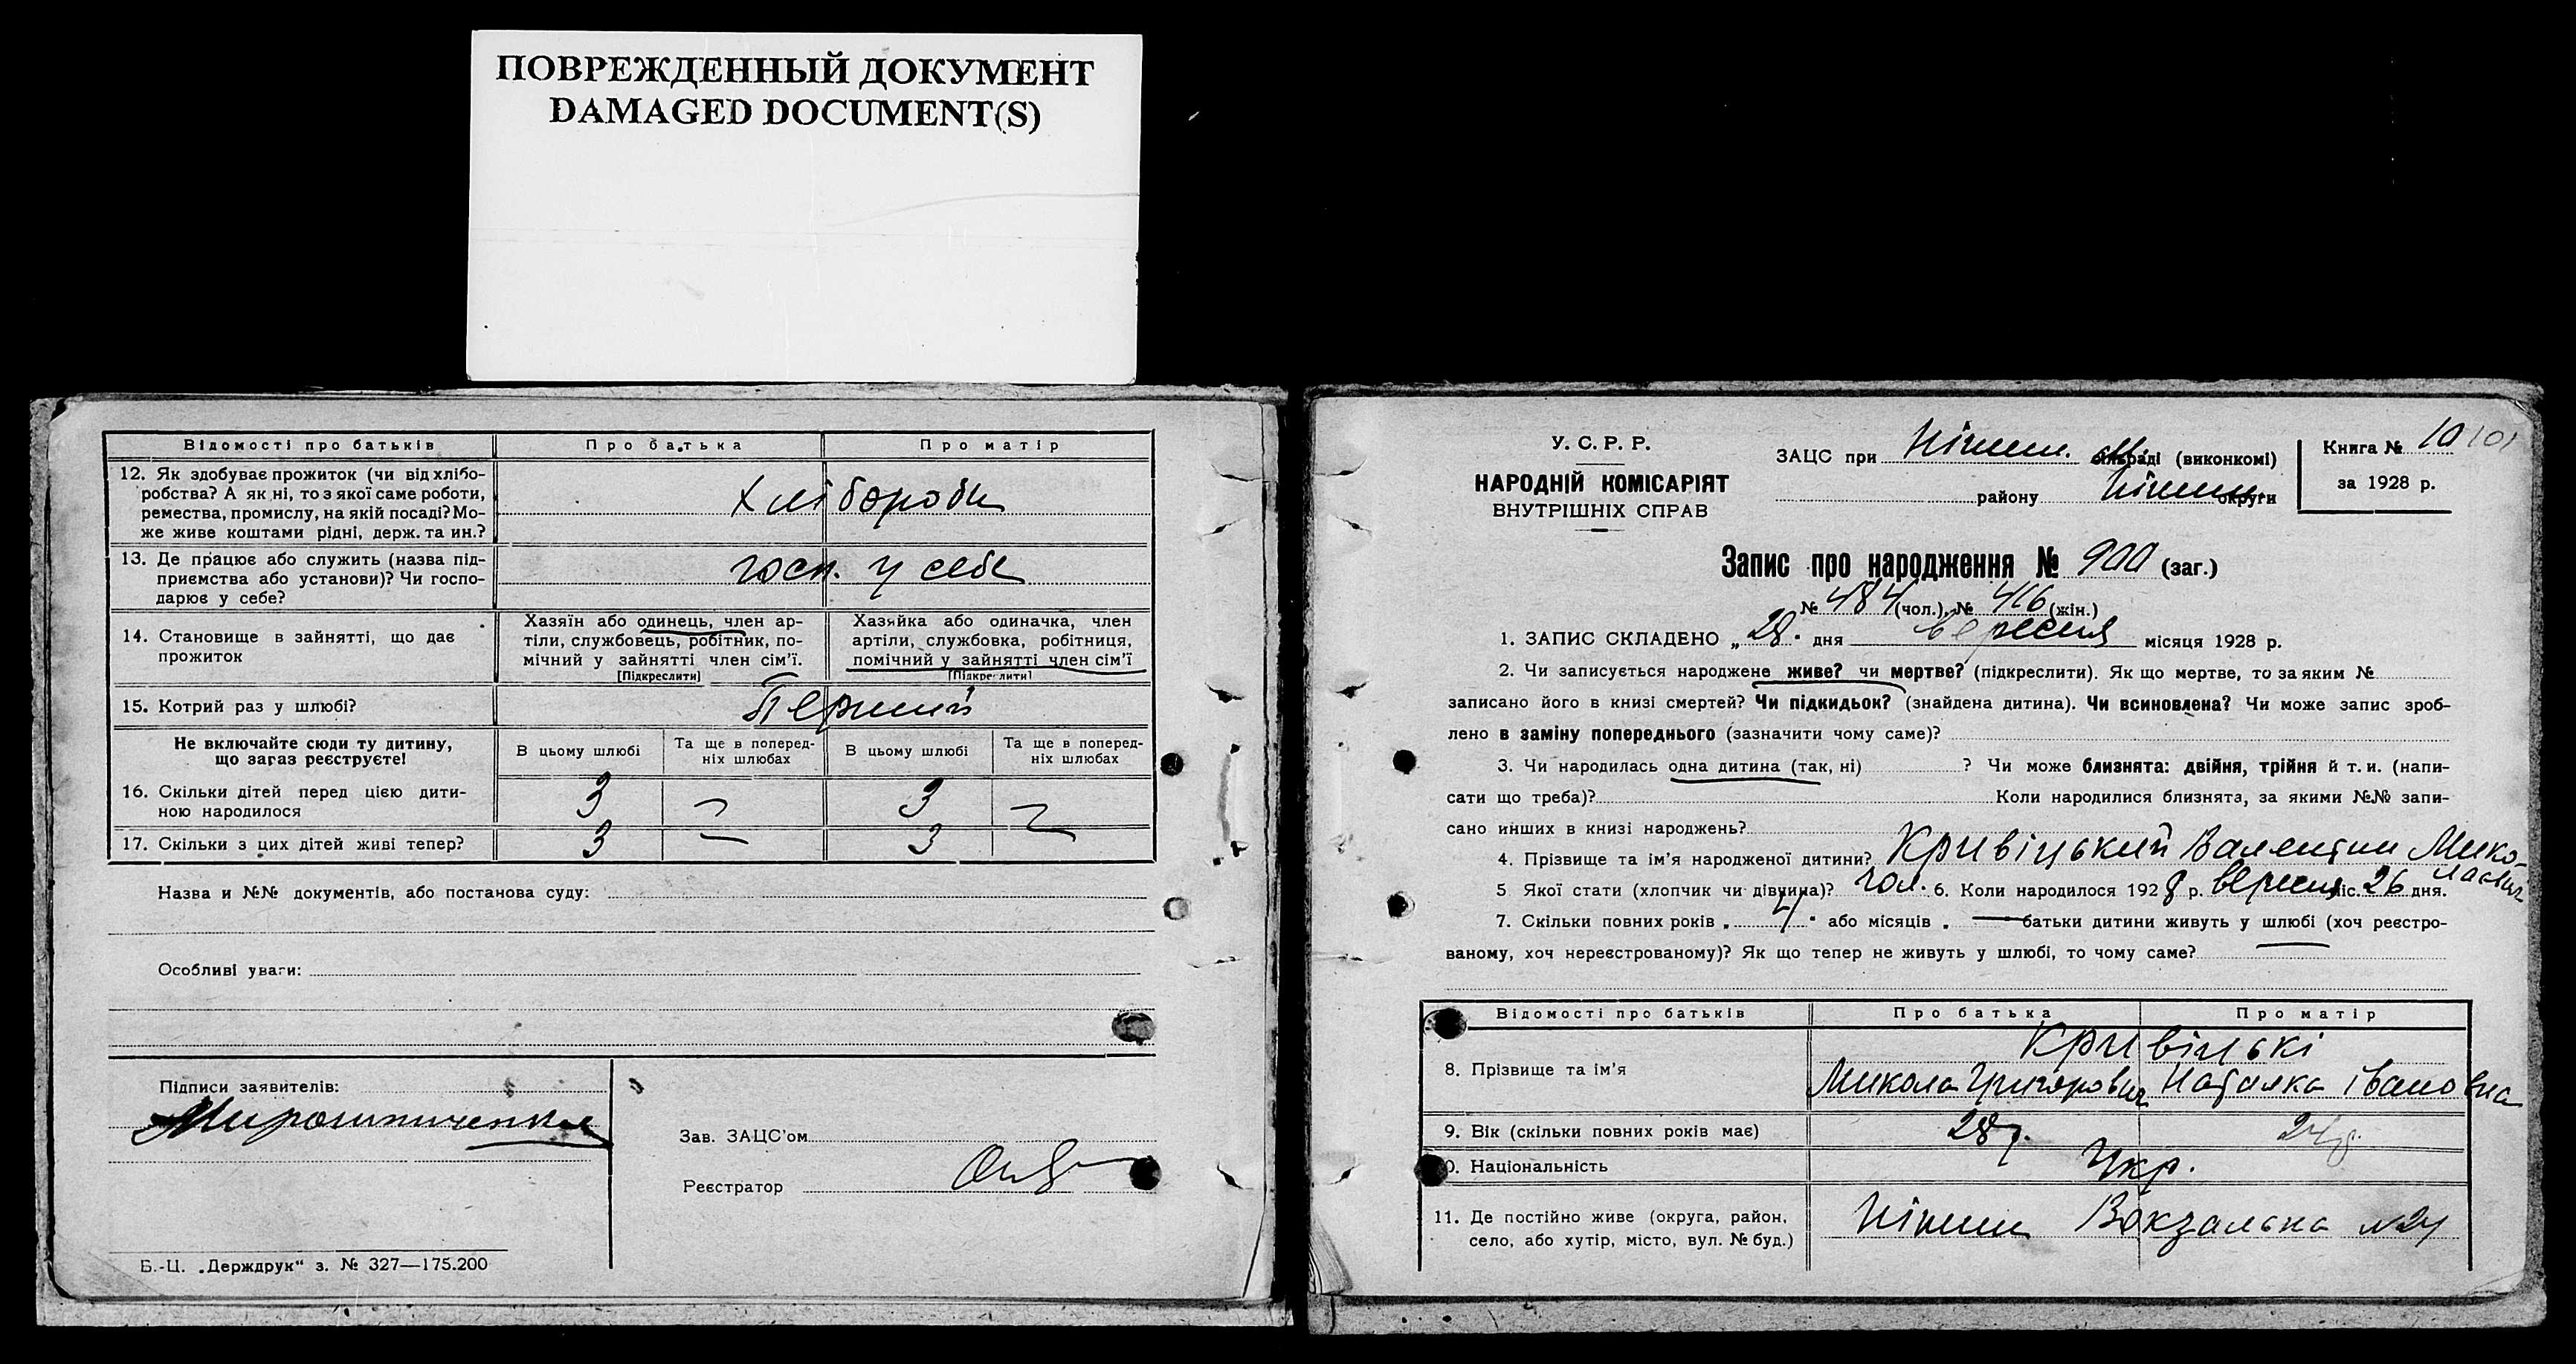 ПОВРЕЖДЕННЫЙ ДОКУМЕНТ
DAMAGED DOCUMENT(S)
Відомості про батьків Про батька Про матір
12. Як здобуває прожиток (чи від хлібо-
робства? А як ні, то з якої саме роботи,
ремества, промислу, на якій посаді? Мо-
же живе коштами рідні, держ. та ин.?
хлібороби
13. Де працює або служить (назва під-
приємства або установи)? Чи госпо-
дарює у себе?
госп. у себе
14. Становище в зайнятті, що дає
прожиток
Хазяїн або одинець, член ар-
тіли, службовець, робітник, по-
мічний у зайнятті член сім'ї.
[Підкреслити]
Хазяйка або одиначка, член
артіли, службовка, робітниця,
помічний у зайнятті член сім'ї
[Підкреслити]
15. Котрий раз у шлюбі? Перший
Не включайте сюди ту дитину,
що зараз реєструєте!
В цьому шлюбі
Та ще в поперед-
ніх шлюбах
В цьому шлюбі
Та ще в поперед-
ніх шлюбах
16. Скільки дітей перед цією дити-
ною народилося
3 — 3 —
17. Скільки з цих дітей живі тепер? 3 — 3 —
Назва и №№ документів, або постанова суду:
Особливі уваги:
Підписи заявителів:
Мирошниченко
Зав. ЗАЦС'ом
Реєстратор
Б.-Ц. „Держдрук" з. № 327—175.200
У. С. Р. Р.
НАРОДНІЙ КОМІСАРІЯТ
ВНУТРІШНІХ СПРАВ
ЗАЦС при Ніжин. сільраді (виконкомі)
району Ніжин. округи
Книга № 10 101
за 1928 р.
Запис про народження № 900 (заг.)
№ 484 (чол.), № 416 (жін.)
1. ЗАПИС СКЛАДЕНО „ 28. дня вересня місяця 1928 р.
2. Чи записується народжене живе? чи мертве? (підкреслити). Як що мертве, то за яким №
записано його в книзі смертей? Чи підкидьок? (знайдена дитина). Чи всиновлена? Чи може запис зроб-
лено в заміну попереднього (зазначити чому саме)?
3. Чи народилась одна дитина (так, ні) ? Чи може близнята: двійня, трійня й т. и. (напи-
сати що треба)? Коли народилися близнята, за якими №№ запи-
сано инших в книзі народжень?
4. Прізвище та ім'я народженої дитини? Кривіцький Валентин Мико-
лаєвич
5 Якої стати (хлопчик чи дівчина)? чол. 6. Коли народилося 1928 р. вересня міс. 26 дня.
7. Скільки повних років „ 4 " або місяців „ — батьки дитини живуть у шлюбі (хоч реєстро-
ваному, хоч нереєстрованому)? Як що тепер не живуть у шлюбі, то чому саме?
Відомості про батьків Про батька Про матір
8. Прізвище та ім'я
Кривіцькі
Микола Григорович Наталка Івановна
9. Вік (скільки повних років має) 28 р. 24 р.
10. Національність Укр.
11. Де постійно живе (округа, район,
село, або хутір, місто, вул. № буд.)
Ніжин Вокзальна №24